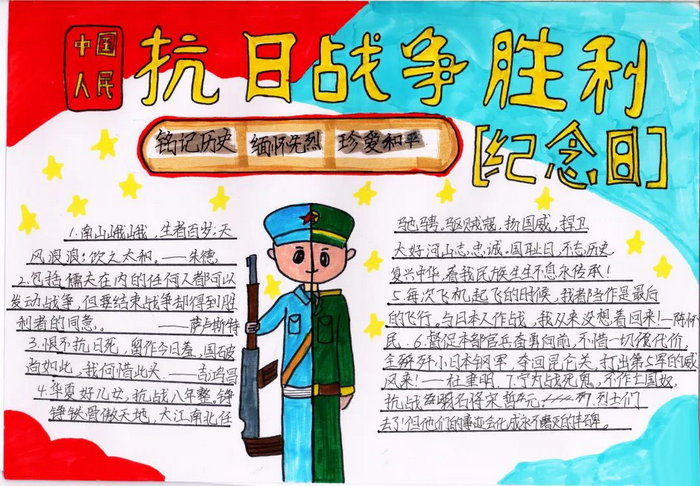 中国
人民
抗日战争胜利
[纪念日]
铭记历史 缅怀先烈 珍爱和平
1.南山峨峨，生者百岁，天
风浪浪，饮之太和。——朱德
2.包括懦夫在内的任何人都可以
发动战争，但要结束战争却得到胜
利者的同意。——萨卢斯特
3.恨不抗日死，留作今日羞，国破
尚如此，我何惜此头——吉鸿昌
4.华夏好儿女，抗战八年整。铮
铮铁骨傲天地，大江南北任
驰骋。驱贼寇，扬国威，捍卫
大好河山志忠诚。国耻日，不忘历史
复兴中华，看我民族生生不息永传承！
5.每次飞机起飞的时候，我都当作是最后
的飞行。与日本人作战，我从来没想着回来！—陈怀
民 6.督促本部官兵奋勇向前，不惜一切代价，
全歼小日本钢军，夺回昆仑关，打出第5军的威
风来！——杜聿明 7.宁为战死鬼，不作亡国奴，
抗战名将宋哲元 烈士们
去了！但他们的事迹会化成永不磨灭的丰碑。